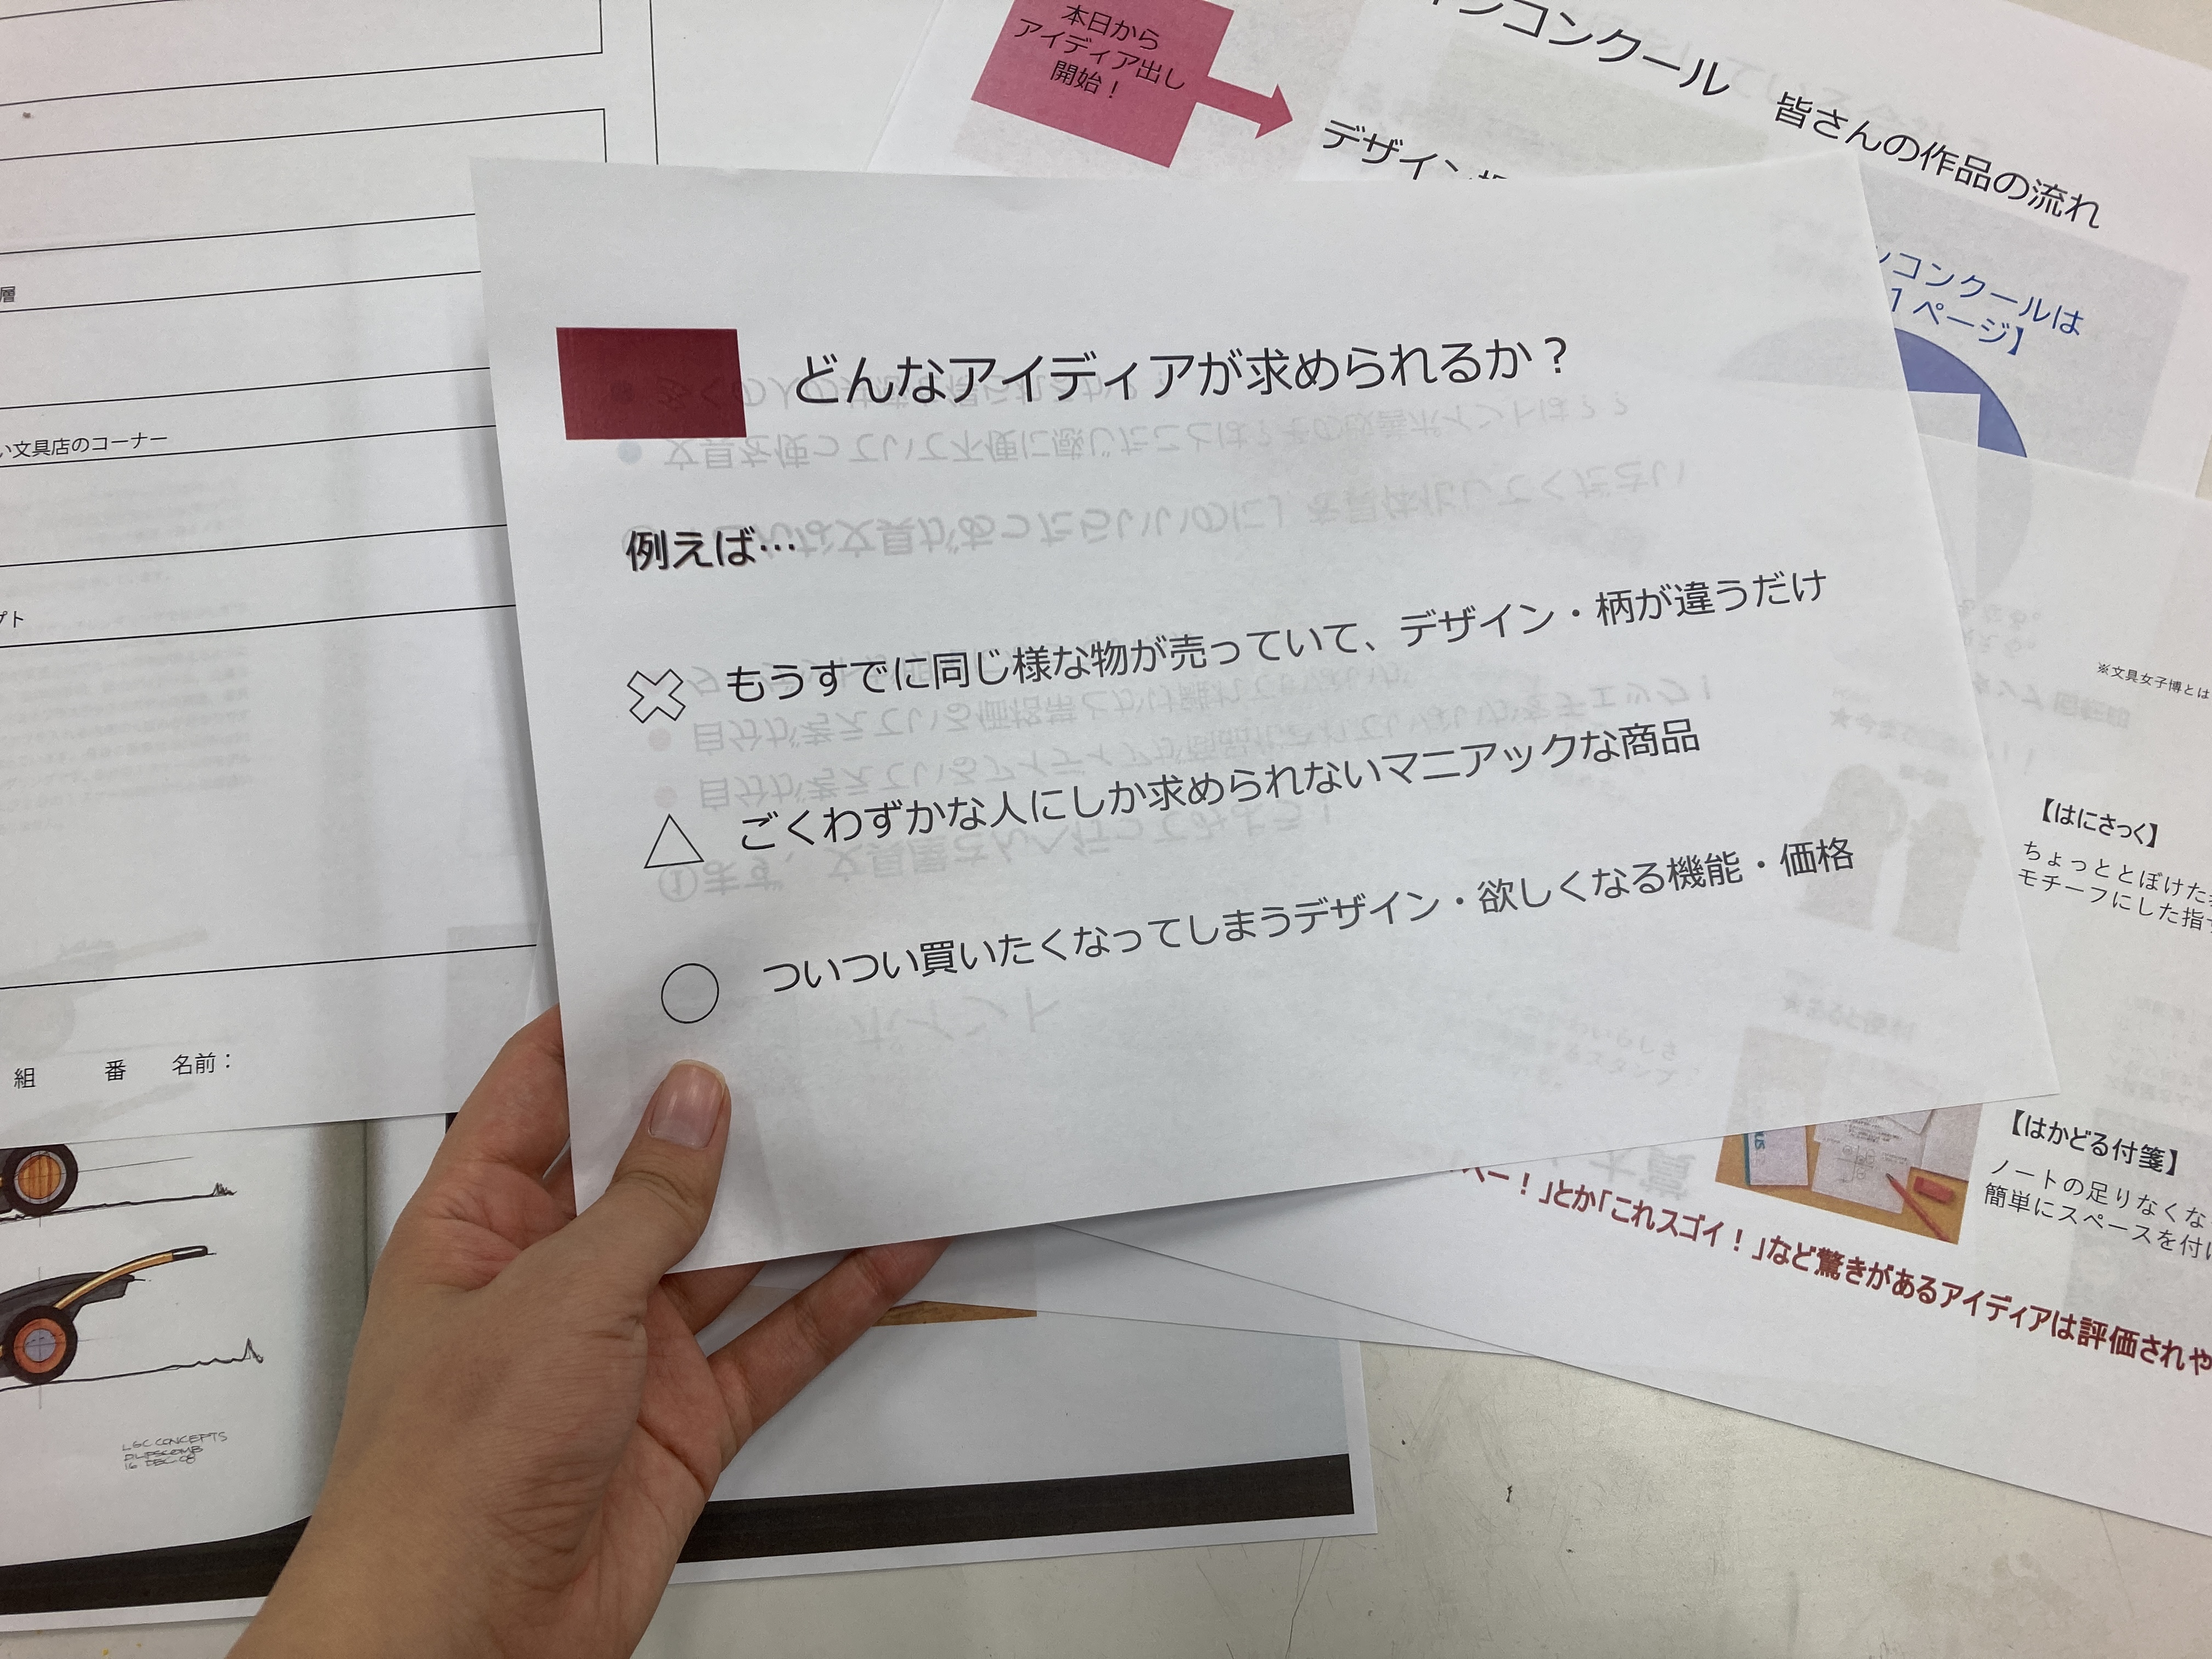 本日から
アイディア出し
開始！
ンコンクール　皆さんの作品の流れ
デザイン
コンクールは
1ページ】
層
い文具店のコーナー
プト
組　番　名前：
どんなアイディアが求められるか？
例えば…
✕ もうすでに同じ様な物が売っていて、デザイン・柄が違うだけ
△ ごくわずかな人にしか求められないマニアックな商品
○ ついつい買いたくなってしまうデザイン・欲しくなる機能・価格
※文具女子博とは
【はにさっく】
ちょっととぼけた
モチーフにした指
【はかどる付箋】
ノートの足りなくな
簡単にスペースを付け
ー！」とか「これスゴイ！」など驚きがあるアイディアは評価されや
LGC CONCEPTS
16 DEC 08